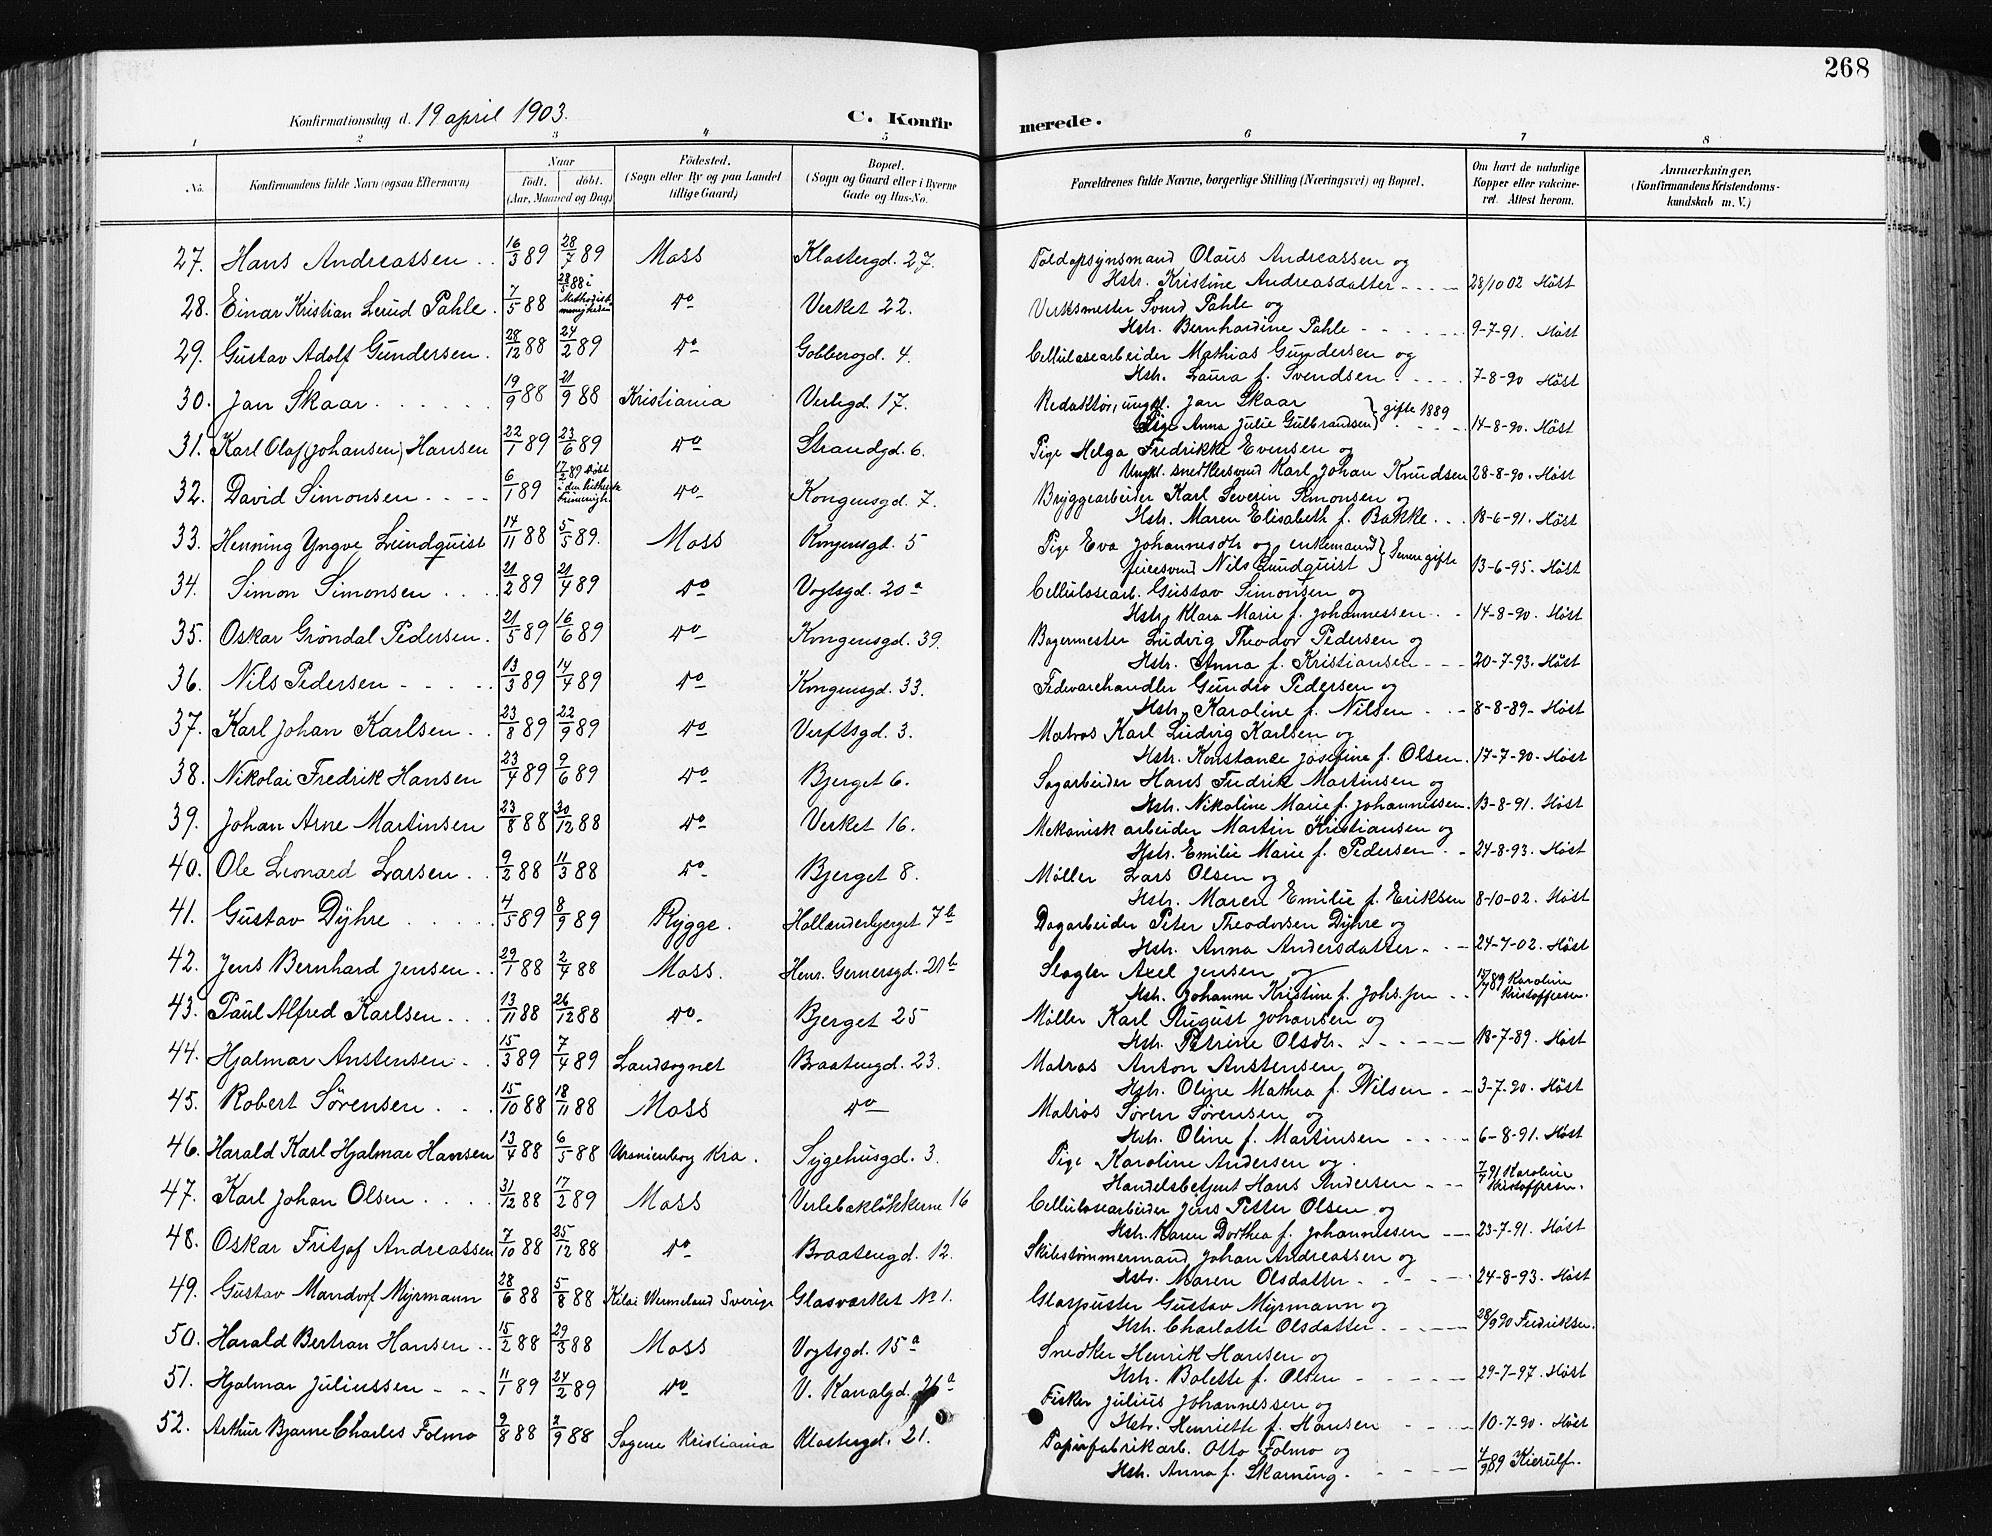 268
Konfirmationsdag d. 19 april 1903.
C. Konfirmerede.
1 2 3 4 5 6 7 8
No.
Konfirmandens fulde Navn (ogsaa Efternavn)
Naar
født. døbt.
(Aar, Maaned og Dag)
Fødested.
(Sogn eller By og paa Landet
tillige Gaard)
Bopæl.
(Sogn og Gaard eller i Byerne
Gade og Hus-No.
Forældrenes fulde Navne, borgerlige Stilling (Næringsvei) og Bopæl.
Om havt de naturlige
Kopper eller vakcine-
ret. Attest herom.
Anmærkninger.
(Konfirmandens Kristendoms-
kundskab m. V.)
27. Hans Andreassen 16/3 89 28/7 89 Moss Klostergd. 27. Toldopsynsmand Olaus Andreassen og
Hstr. Kristine Andreasdatter 28/10 02 Høst
28. Einar Kristian Lund Pahle 7/5 88 28/5 88 i Methodistmenigheden do Verket 22. Verksmester Svend Pahle og
Hstr. Bernhardine Pahle 9-7-91. Høst
29. Gustav Adolf Gundersen 28/12 88 24/2 89 do Gobbergd. 4. Cellulosearbeider Mathias Gundersen og
Hstr. Laura f. Svendsen 7-8-90 Høst
30. Jan Skaar 19/9 88 21/9 88 Kristiania Verlegd. 17. Redaktør, ungkl. Jan Skaar
Pige Anna Julie Gulbrandsen } gifte 1889 14-8-90. Høst
31. Karl Olaf (Johansen) Hansen 22/1 89 23/6 89 do Strandgd. 6. Pige Helga Fredrikke Evensen og
Ungkl. snedkersvend Karl Johan Knudsen 28-8-90. Høst
32. David Simonsen 6/1 89 17/2 89 døbt i den luthersk Frimenigh. do Kongensgd. 7. Bryggearbeider Karl Severin Simonsen og
Hstr. Maren Elisabeth f. Bakke 18-6-91. Høst
33. Henning Yngve Lundquist 14/11 88 5/5 89. Moss Kongensgd. 5 Pige Eva Johannesdtr og enkemand
feiersvend Nils Lundquist } Senere gifte 13-6-95. Høst
34. Simon Simonsen 21/2 89 21/4 89 do Vogtsgd. 20a Cellulosearb. Gustav Simonsen og
Hstr. Klara Marie f. Johannessen 14-8-90. Høst
35. Oskar Grøndal Pedersen 21/5 89 16/6 89 do Kongensgd. 39. Bagermester Ludvig Theodor Pedersen og
Hstr. Anna f. Kristiansen 20-7-93. Høst
36. Nils Pedersen 13/3 89 14/4 89 do Kongensgd. 33. Fedevarehandler Gundro Pedersen og
Hstr. Karoline f. Nilsen 8-8-89 Høst
37. Karl Johan Karlsen 23/8 89 22/9 89 do Verftsgd. 3. Matros Karl Ludvig Karlsen og
Hstr. Konstance Josefine f. Olsen 17-7-90. Høst
38. Nikolai Fredrik Hansen 23/4 89 9/6 89 do Bjerget 6. Sagarbeider Hans Fredrik Martinsen og
Hstr. Nikoline Marie f. Johannessen 13-8-91. Høst
39. Johan Arne Martinsen 23/8 88 30/12 88 do Verket 16. Mekanisk arbeider Martin Kristiansen og
Hstr. Emilie Marie f. Pedersen 24-8-93. Høst
40. Ole Leonard Larsen 9/2 88 11/3 88 do Bjerget 8. Møller Lars Olsen og
Hstr. Maren Emilie f. Eriksen 8-10-02. Høst
41. Gustav Dyhre 4/5 89 8/9 89 Rygge. Hollænderbjerget 7b Dagarbeider Peter Theodorsen Dyhre og
Hstr. Anna Andersdatter 24-7-02. Høst
42. Jens Bernhard Jensen 29/1 88 2/4 88 Moss. Henr. Gernersgd. 21b Slagter Axel Jensen og
Hstr. Johanne Kristine f. Johs.sen 89 Karoline Kristoffersen.
43. Paul Alfred Karlsen 13/11 88 26/12 88 do Bjerget 25 Møller Karl August Johansen og
Hstr. Petrine Olsdtr. 18-7-89. Høst
44. Hjalmar Anstensen 15/3 89 7/4 89 Landsognet Braatengd. 23. Matros Anton Anstensen og
Hstr. Oline Mathea f. Nilsen 3-7-90. Høst
45. Robert Sørensen 15/10 88 18/11 88 Moss do Matros Søren Sørensen og
Hstr. Oline f. Martinsen 6-8-91. Høst
46. Harald Karl Hjalmar Hansen 13/4 88 6/5 88 Uranienborg Kra. Sygehusgd. 3. Pige Karoline Andersen og
Handelsbetjent Hans Andersen 91 Karoline Kristoffersen.
47. Karl Johan Olsen 31/12 88 17/2 89 Moss Verlebakløkkerne 16 Cellulosearbeider Jens Petter Olsen og
Hstr. Karen Dorthea f. Johannessen 23-7-91. Høst
48. Oskar Fritjof Andreassen 7/10 88 25/12 88 do Braatengd. 12. Skibstømmermand Johan Andreassen og
Hstr. Maren Olsdatter 24-8-93. Høst
49. Gustav Mandorf Myrmann 28/6 88 5/8 88 Kilai Wermeland Sverige Glasværket No 1. Glaspuster Gustav Myrmann og
Hstr. Charlotte Olsdatter 28/9 90 Fredriksen.
50. Harald Bertran Hansen 15/2 88 29/3 88 Moss Vogtsgd. 15a Snedker Henrik Hansen og
Hstr. Bolette f. Olsen 29-7-97. Høst
51. Hjalmar Juliussen 11/1 89 24/2 89 do V. Kanalgd. Fisker Julius Johannessen og
Hstr. Henriette f. Hansen 10-7-90. Høst
52. Arthur Bjarne Charles Folmo 9/8 88 2/9 88 Sagene Kristiania Klostergd. 21. Papirfabrikarb. Otto Folmo og
Hstr. Anna f. Skarning. 4/9 89 Kierulf.